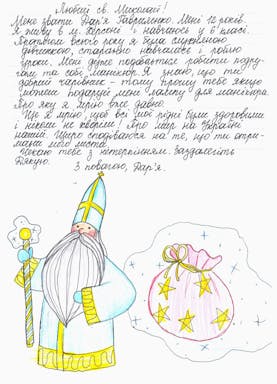 Любий св. Миколай!
Мене звати Дар'я Гавриленко. Мені 12 років.
Я живу в м. Херсоні і навчаюсь у 6 класі.
Впродовж всього року я була слухняною
дівчинкою, старанно навчалась і робила
уроки. Мені дуже подобається робити подру-
гам та собі манікюр. Я знаю, що ти
добрий чарівник – тому прошу тебе якщо
можеш подаруй мені лампу для манікюра.
Про яку я мрію вже давно.
Ще я мрію, щоб всі мої рідні були здоровими
і ніколи не хворіли! Про мир на Україні
нашій. Щиро сподіваюся на те, що ти отри-
маєш мого листа.
Чекаю тебе з нетерпінням. Заздалегідь
Дякую.
З повагою, Дар'я.